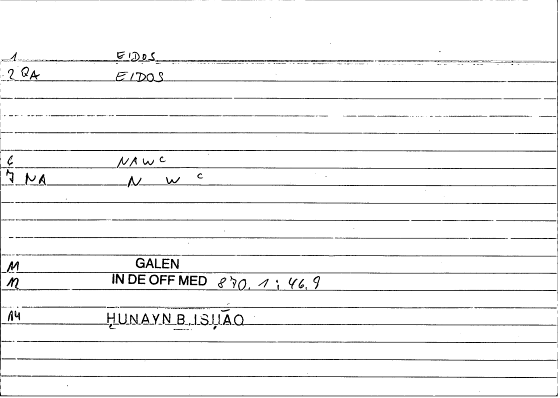 1 EIDOS
2 QA EIDOS
6 NAWC
7 NA N W C
11 GALEN
12 IN DE OFF MED 870. 1 : 46,9
14 ḤUNAYN B. ISḤĀQ